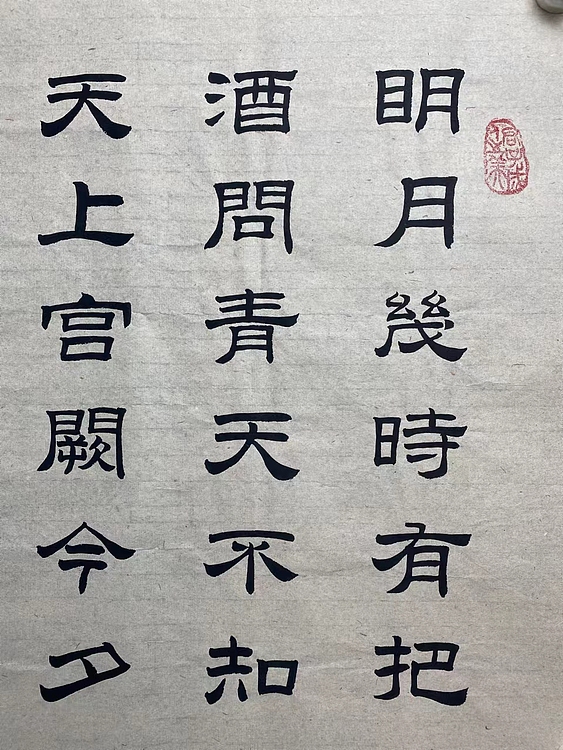 明月幾時有把
酒問青天不知
天上宫闕今夕